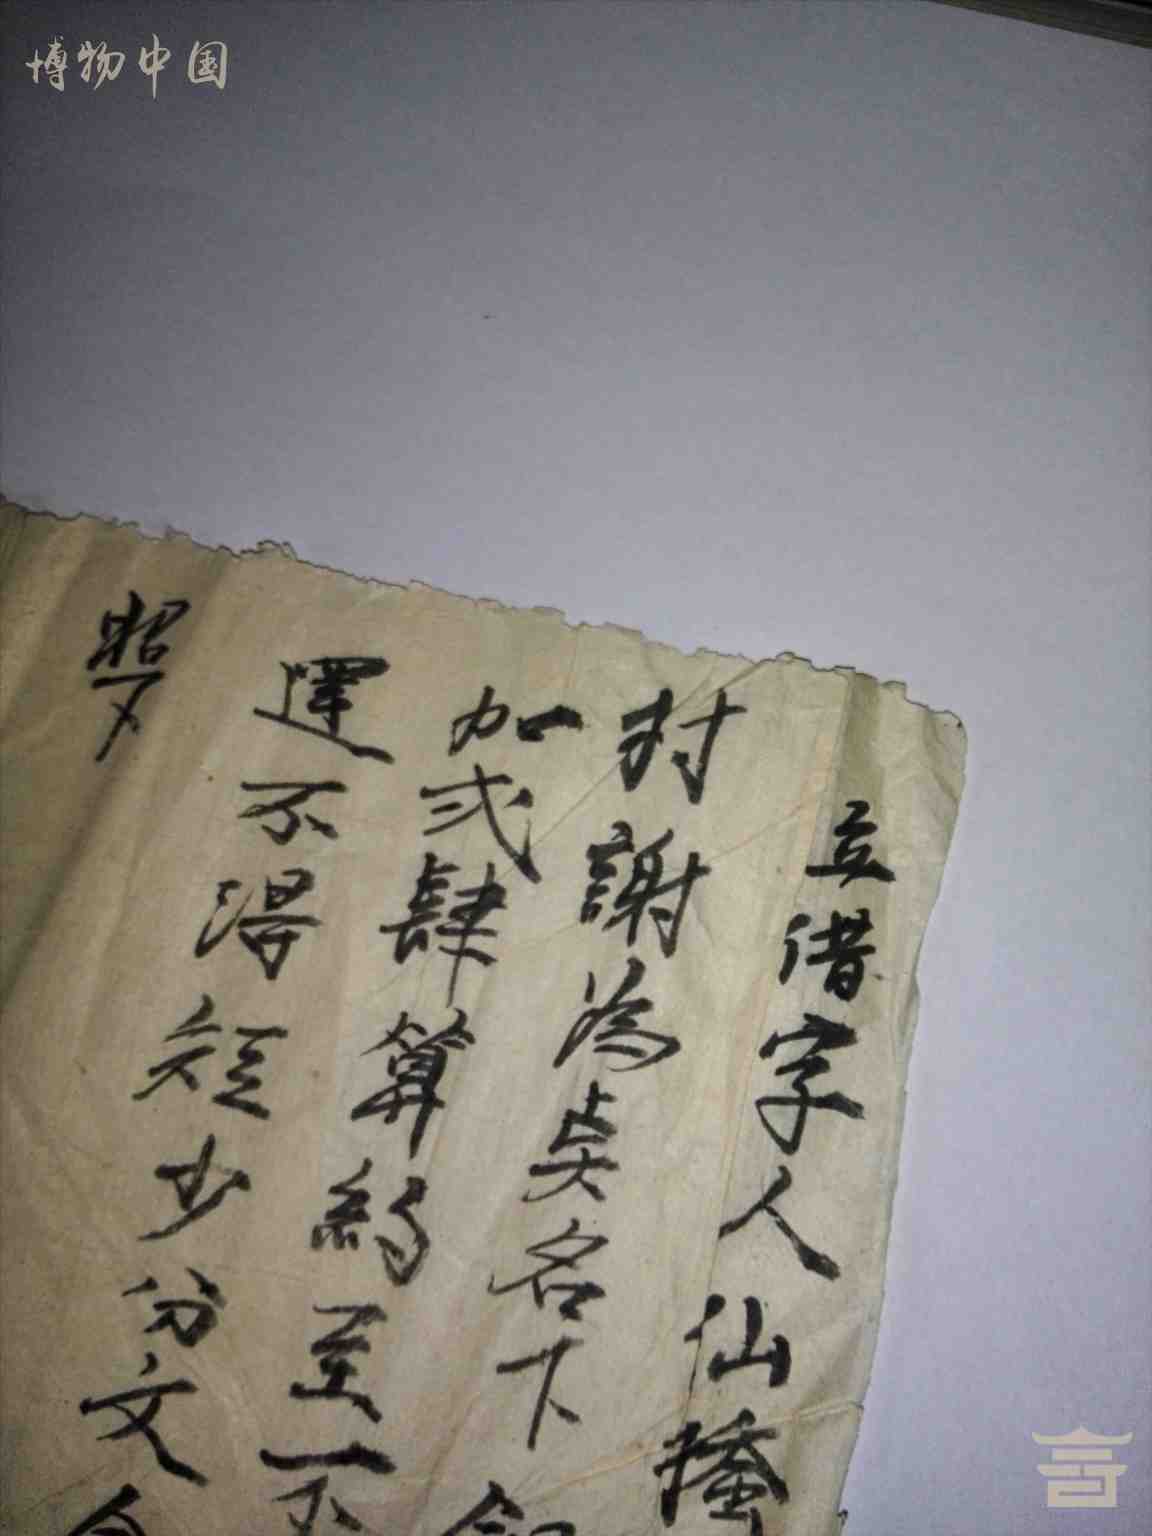 博物中国
立借字人仙
村謝為名下
加弍肆算約至不
還不得短少分文
照